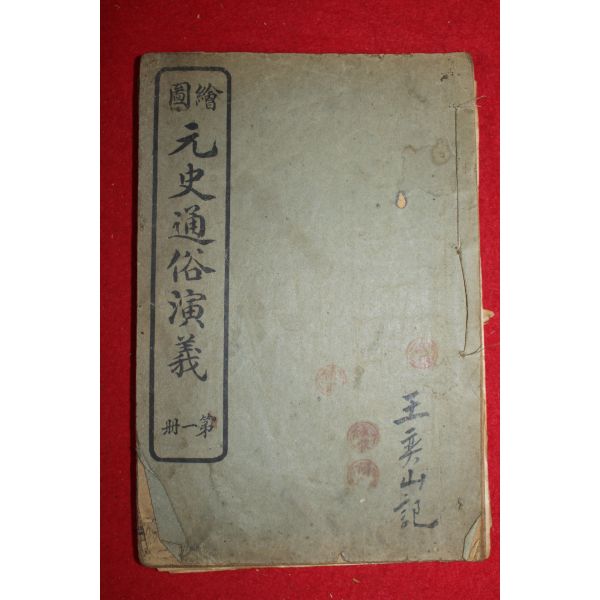 繪圖
元史通俗演義
第一册
王奕山記